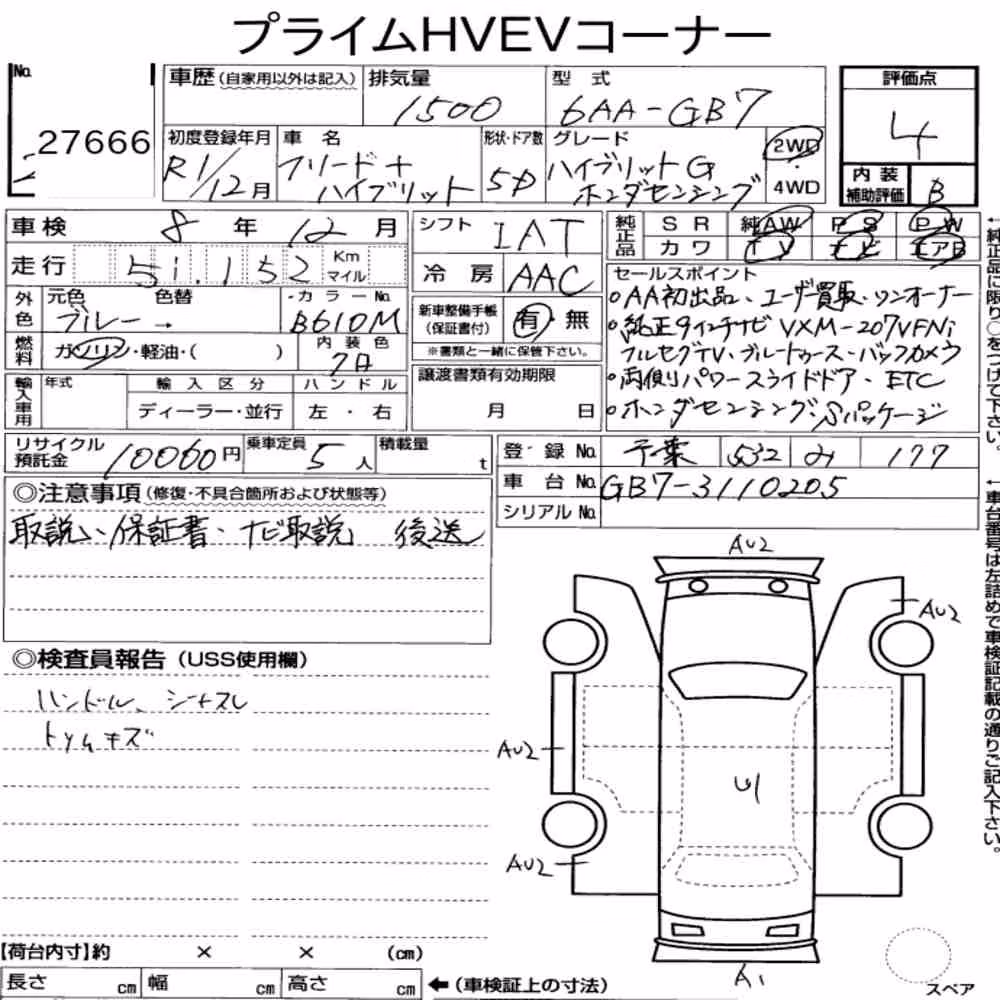 プライムHVEVコーナー
No. 27666
車歴(自家用以外は記入)
排気量 1500
型式 6AA-GB7
評価点 4
内装補助評価 B
初度登録年月 R1/12月
車名 フリード+ ハイブリット
形状・ドア数 5D
グレード ハイブリットG ホンダセンシング
2WD ・ 4WD
車検 8年 12月
シフト IAT
純正品 SR 純AW PS PW
カワ TV ナビ エアB
走行 51,152 Km マイル
冷房 AAC
セールスポイント
○AA初出品、ユーザー買取、ワンオーナー
○純正9インチナビ VXM-207VFNi
フルセグTV・ブルートゥース・バックカメラ
○両側パワースライドドア・ETC
○ホンダセンシング Sパッケージ
外色 元色 ブルー → 色替
カラーNo. B610M
新車整備手帳(保証書付) 有 無
※書類と一緒に保管下さい。
燃料 ガソリン・軽油・( )
内装色 クロ
輸入車用 年式 輸入区分 ハンドル
ディーラー・並行 左・右
譲渡書類有効期限
月 日
リサイクル預託金 10060円
乗車定員 5人
積載量 t
登録No. 千葉 532 み 177
車台No. GB7-3110205
シリアルNo.
◎注意事項(修復・不具合箇所および状態等)
取説、保証書、ナビ取説 後送
◎検査員報告(USS使用欄)
ハンドル、シートスレ
トリムキズ
AU2
AU2
AU2
U1
AU2
A1
スペア
【荷台内寸】約 × × (cm)
長さ cm 幅 cm 高さ cm ←(車検証上の寸法)
←純正品に限り○をつけて下さい。
←車台番号は左詰めで車検証記載の通りご記入下さい。